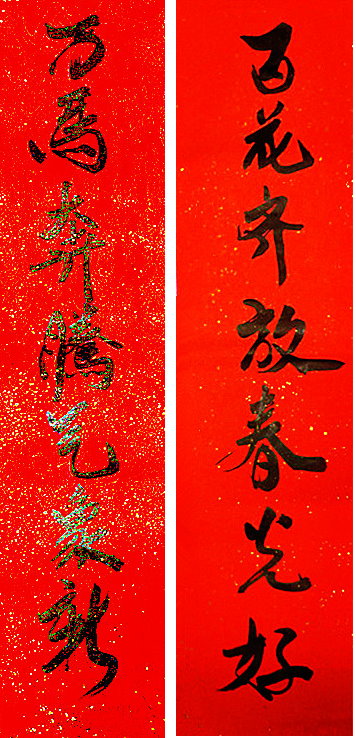 百花齐放春光好
万馬奔腾气象新